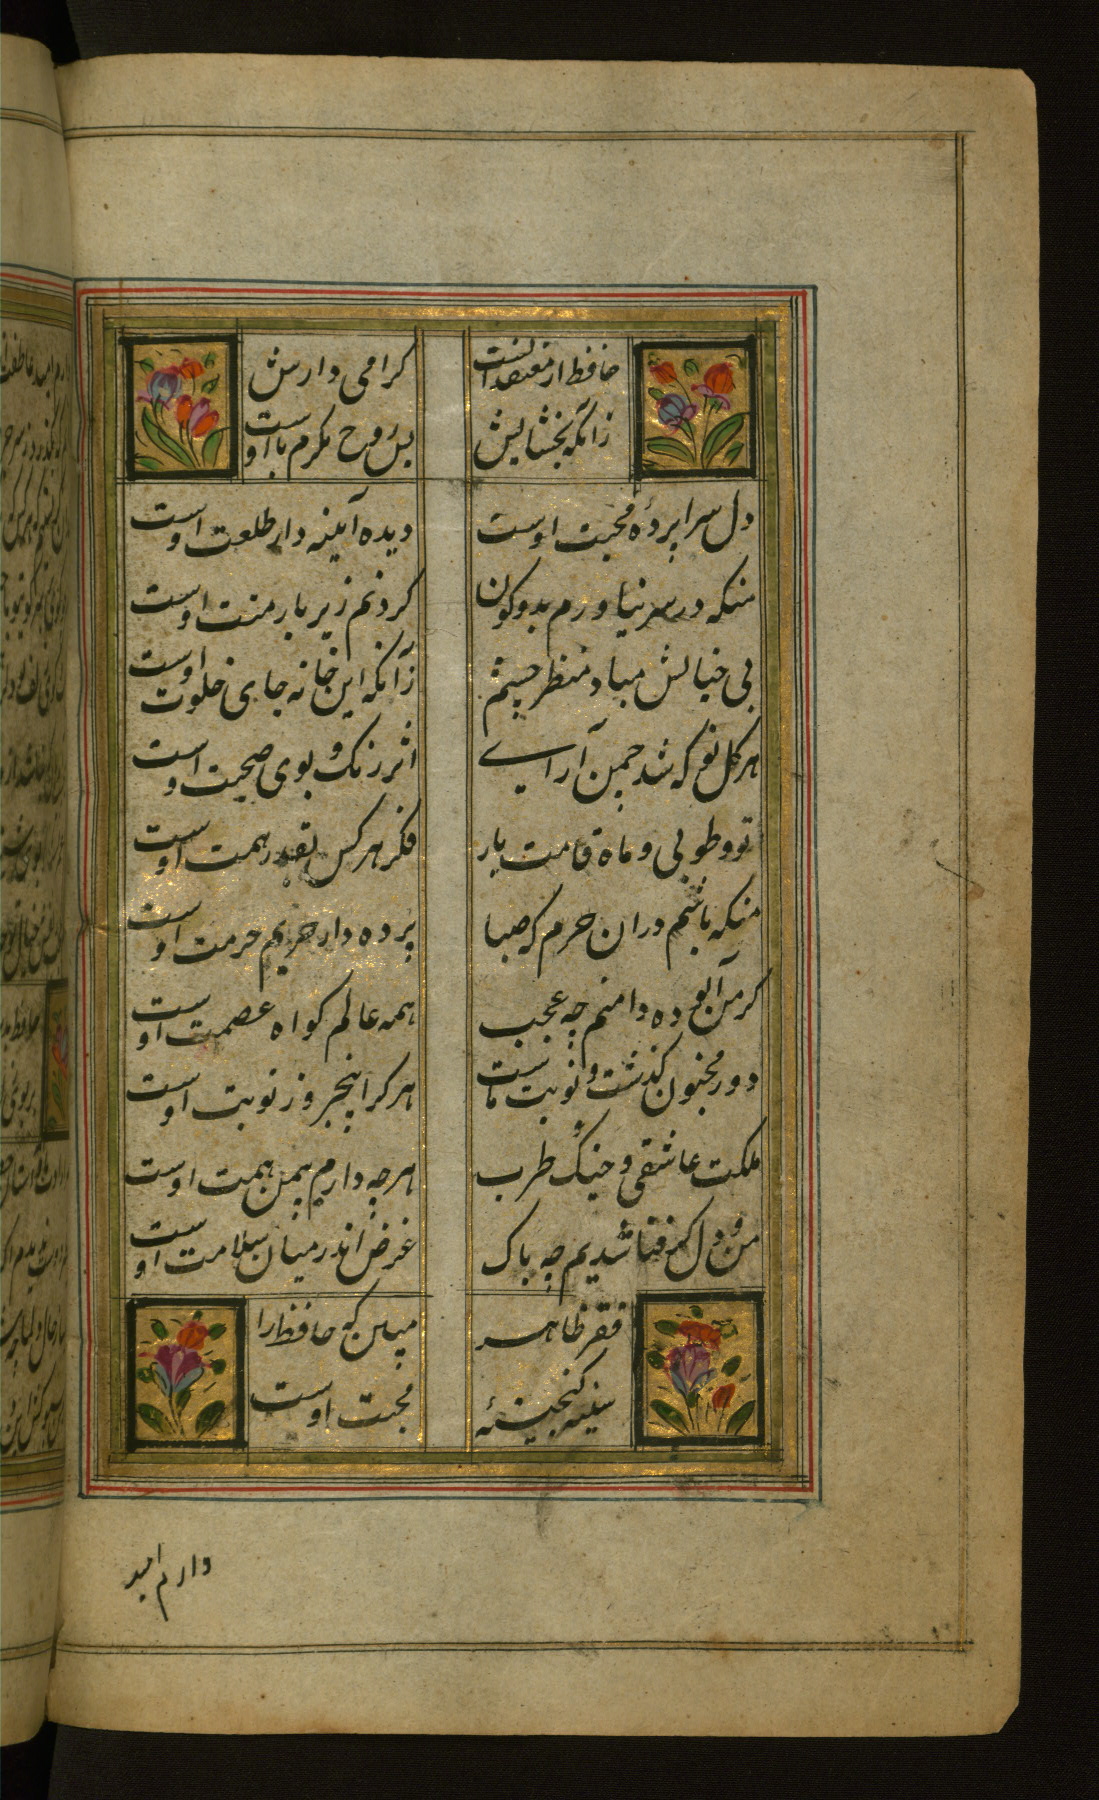 حافظ از معتقدانست گرامی دارش
زانکه بخشایش بس روح مکرم با اوست
دل سراپردهٔ محبت اوست دیده آیینه دار طلعت اوست
منکه سر در نیاورم بدو کون کردنم زیر بار منت اوست
بی خیالش مباد منظر چشم زآنکه این خانه جای خلوت اوست
هر کل نو که شد چمن آرای اثر رنک و بوی صحبت اوست
تو و طوبی و ماه قامت یار فکر هر کس بقدر همت اوست
منکه باشم دران حرم که صبا پرده دار حریم حرمت اوست
کر من آلوده دامنم چه عجب همه عالم کواه عصمت اوست
دور مجنون کذشت و نوبت ماست هر کرا پنجروز نوبت اوست
ملکت عاشقی و کنج طرب هرچه دارم بیمن همت اوست
من و دل کر فنا شدیم چه باک غرض اندر میان سلامت اوست
فقر ظاهر مبین که حافظ را
سینه کنجینهٔ محبت اوست
دارم امید